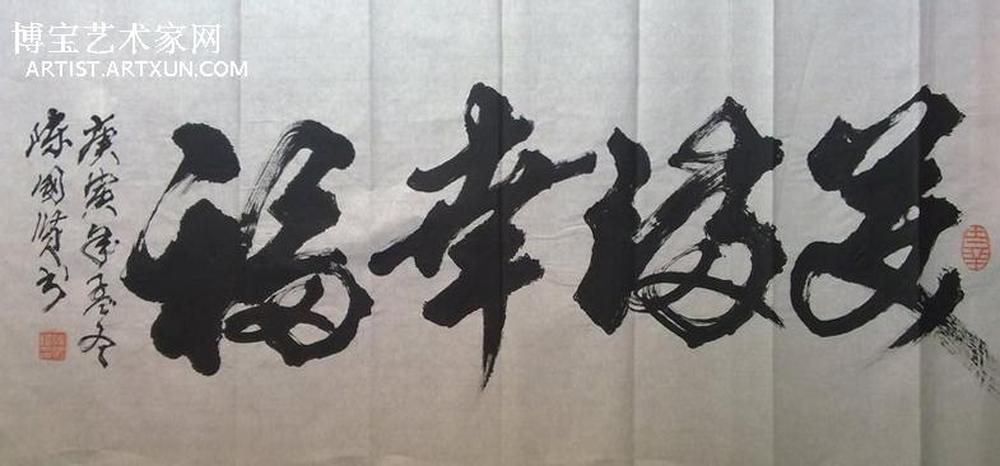 博宝艺术家网
ARTIST.ARTXUN.COM
美满幸福
庚寅年孟冬
陈国胜书